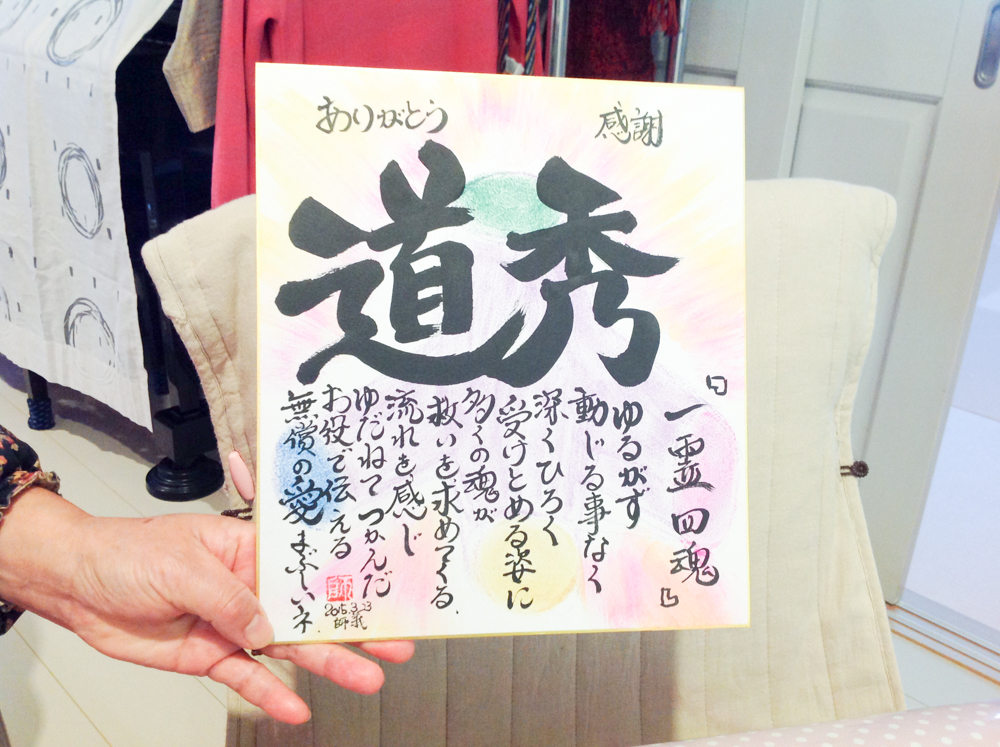 感謝
ありがとう
秀道
『一霊四魂』
ゆるがず
動じる事なく
深くひろく
受けとめる姿に
多くの魂が
救いを求めてくる、
流れを感じ
ゆだねて つかんだ
お役で伝える
無償の愛 まぶしいネ、
2015.3.23